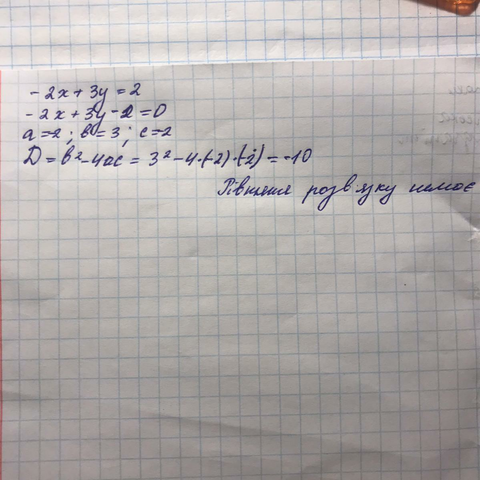 - 2x + 3y = 2
- 2x + 3y - 2 = 0
a = 2 ; b = 3 ; c = 2
D = b² - 4ac = 3² - 4·(-2)·(-2) = -10
Рівняння розв'язку немає